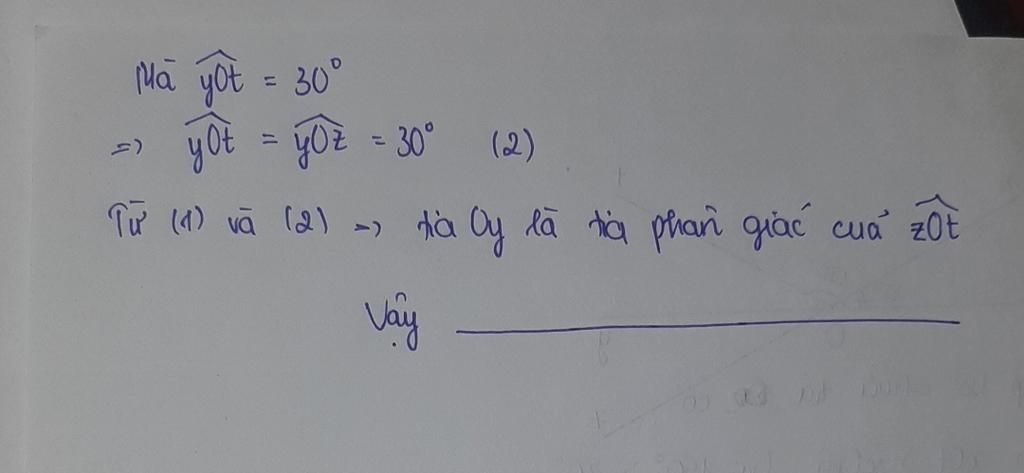 Mà yOt = 30°
=> yOt = yOz = 30° (2)
Từ (1) và (2) => tia Oy là tia phân giác của zOt
Vậy